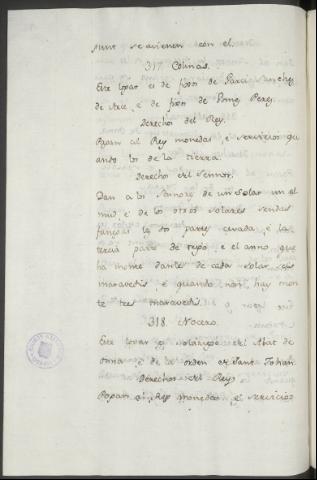 sunt se avienen con el.
317. Colinas.
Este logar es de fijos de Garci Sanchez
de Arce, é de fijos de Ponç Perez.
Derechos del Rey.
Pagan al Rey monedas, é servicios qu
ando los de la tierra.
Derechos del Sennor.
Dan a los Sennores de un solar un al
mud, é de los otros solares sendas
fanegas las dos partes cevada, é la
tercia parte de trigo, e el anno que
ha monte danles de cada solar
maravedis, é quando non hay mon
te tres maravedis.
318. Nocero.
Este logar es solariego del Abat de
Onna, é de la orden de Sant Johan.
Derechos del Rey.
Pagan al Rey monedas, é servicios